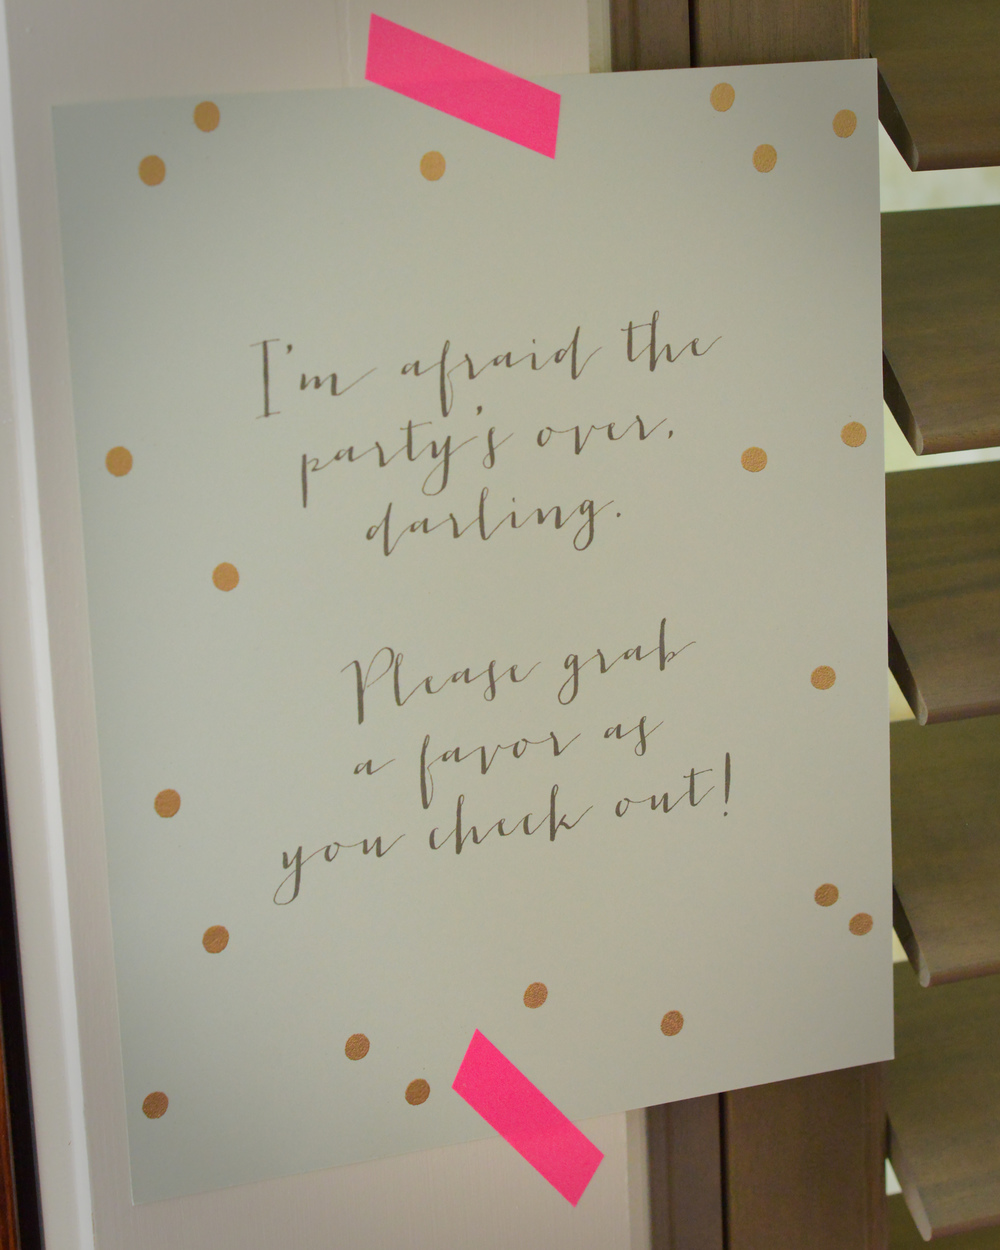 I'm afraid the
party's over,
darling.
Please grab
a favor as
you check out!